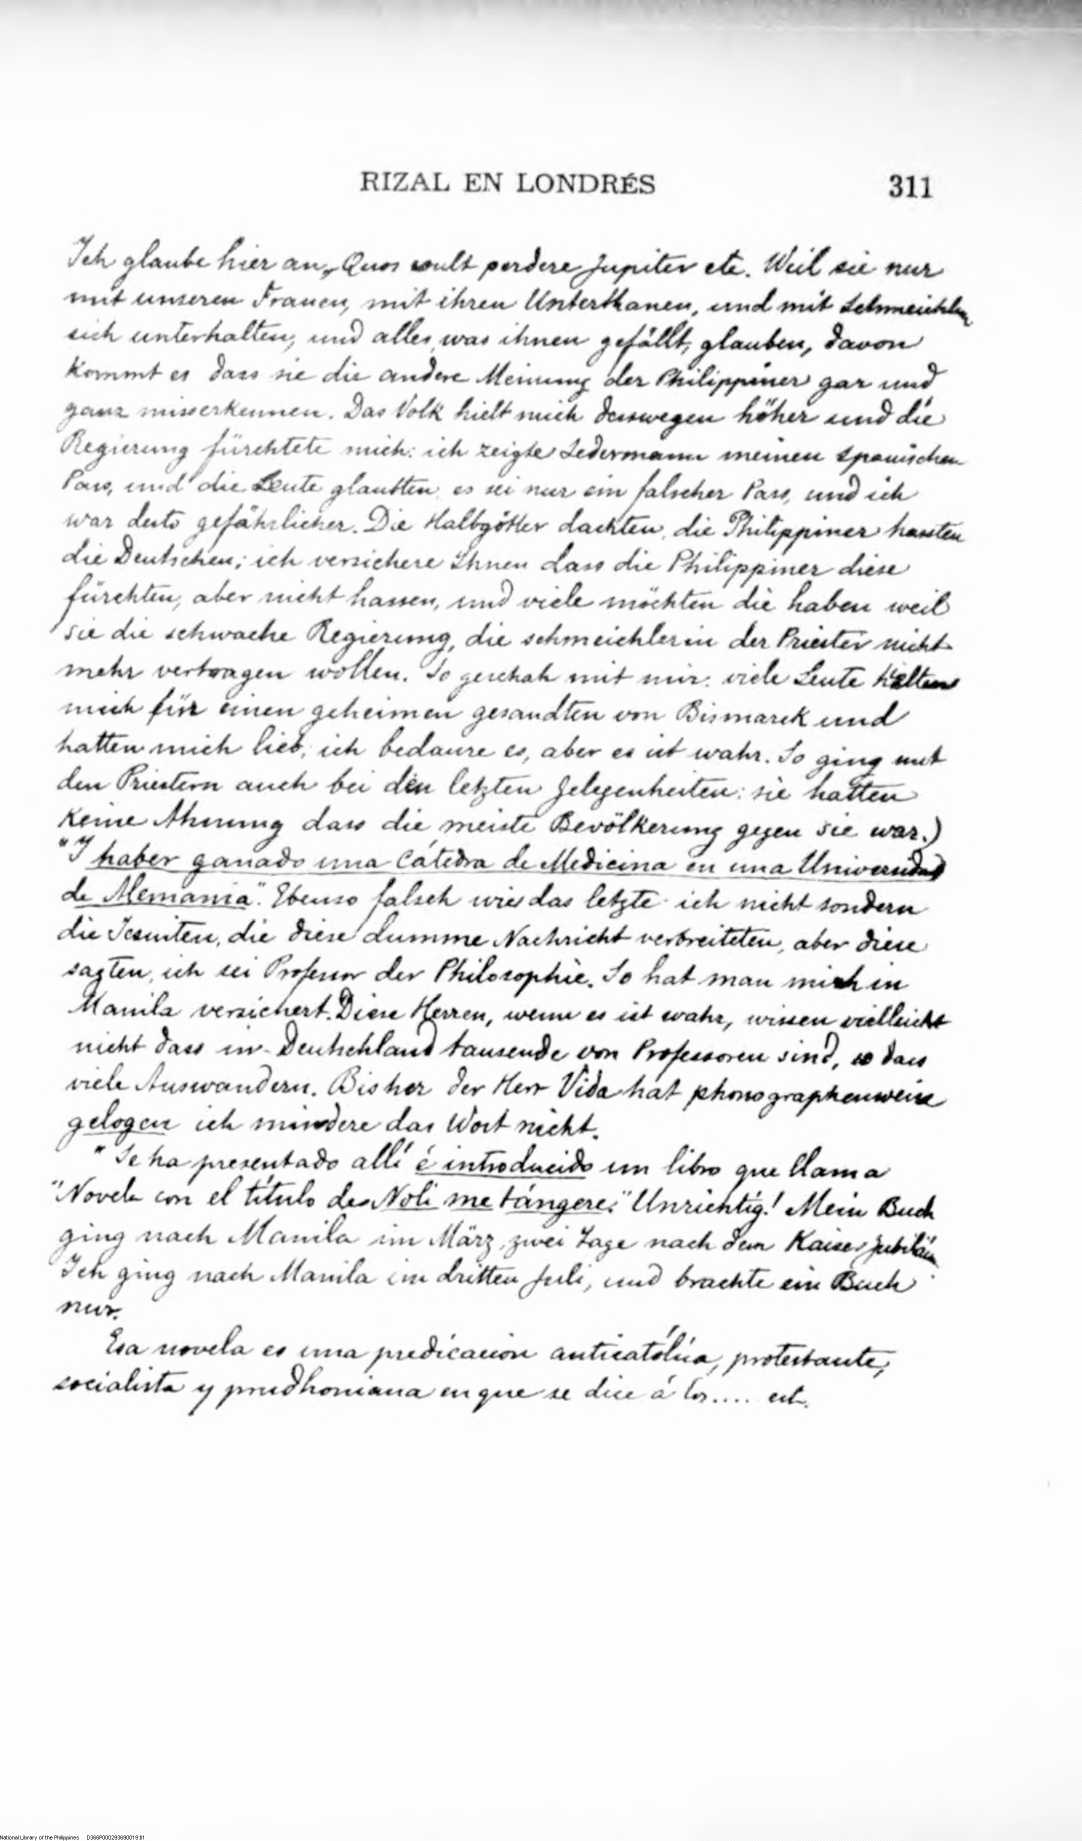 RIZAL EN LONDRÉS 311
Ich glaube hier an „Quos vult perdere Jupiter etc. Weil sie nur
mit unseren Frauen, mit ihren Unterthanen, und mit Schmeichlern
sich unterhalten, und alles, was ihnen gefällt, glauben, davon
kommt es dass sie die andere Meinung der Philippiner gar und
ganz misserkennen. Das Volk hielt mich desswegen höher und die
Regierung fürchtete mich: ich zeigte Jedermann meinen spanischen
Pass, und die Leute glaubten es sei nur ein falscher Pass, und ich
war desto gefährlicher. Die Halbgötter dachten, die Philippiner hassten
die Deutschen; ich versichere Ihnen dass die Philippiner diese
fürchten, aber nicht hassen, und viele möchten die haben weil
sie die schwache Regierung, die schmeichlerin der Priester nicht
mehr vertragen wollen. So geschah mit mir: viele Leute hielten
mich für einen geheimen gesandten von Bismarck und
hatten mich lieb; ich bedaure es, aber es ist wahr. So ging mit
den Priestern auch bei den letzten Gelegenheiten: sie hatten
keine Ahnung dass die meiste Bevölkerung gegen sie war.)
"Y haber ganado una Cátedra de Medicina en una Universidad
de Alemania". Ebenso falsch wie das letzte: ich nicht sondern
die Jesuiten, die diese dumme Nachricht verbreiteten, aber diese
sagten, ich sei Professor der Philosophie. So hat man mich in
Manila versichert. Diese Herren, wenn es ist wahr, wissen vielleicht
nicht dass in Deutschland tausende von Professoren sind, so dass
viele Auswandern. Bisher der Herr Vida hat phonographenweise
gelogen ich mindere das Wort nicht.
"Se ha presentado allí é introducido un libro que llama
"Novela con el título de Noli me tángere." Unrichtig! Mein Buch
ging nach Manila im März, zwei Tage nach dem Kaiser Jubiläum.
Ich ging nach Manila im dritten Juli, und brachte ein Buch
nur.
Esa novela es una predicacion anticatólica, protestante,
socialista y prudhoniana en que se dice á los.... etc.
National Library of the Philippines